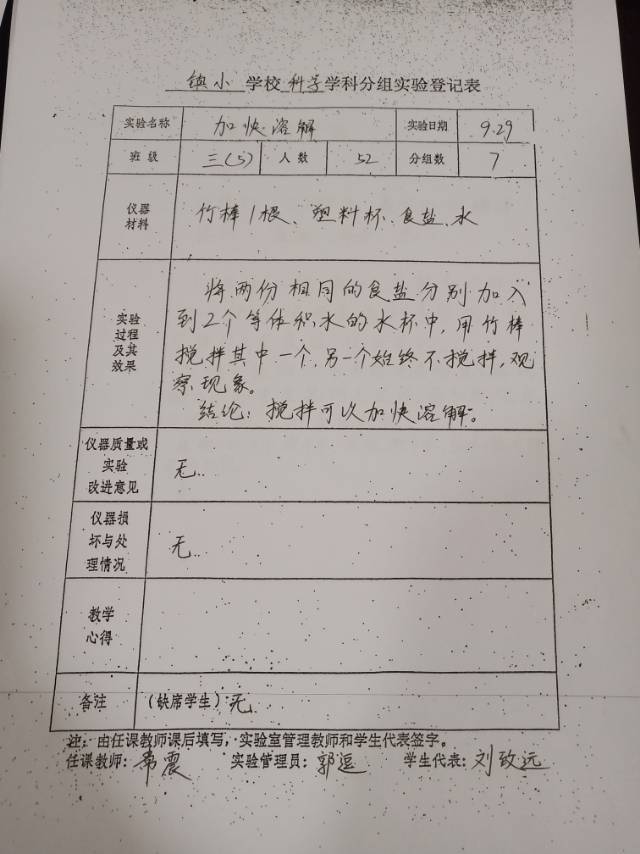 镇小 学校 科学 学科分组实验登记表
实验名称 加快溶解 实验日期 9.29
班级 三(5) 人数 52 分组数 7
仪器
材料
竹棒1根、塑料杯、食盐、水
实验
过程
及其
效果
将两份相同的食盐分别加入
到2个等体积水的水杯中,用竹棒
搅拌其中一个,另一个始终不搅拌,观
察现象。
结论:搅拌可以加快溶解。
仪器质量或
实验
改进意见
无
仪器损
坏与处
理情况
无
教学
心得
备注 (缺席学生)无
注:由任课教师课后填写,实验室管理教师和学生代表签字。
任课教师: 实验管理员:郭逗 学生代表:刘致远